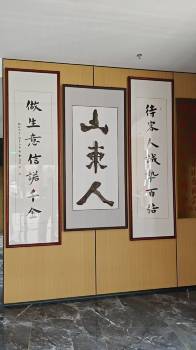 待客人誠挚百倍
山東人
做生意信諾千金